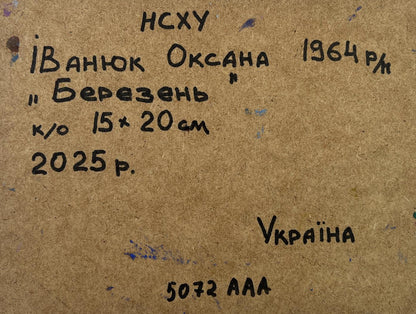 НСХУ
Іванюк Оксана 1964 р/н
„ Березень "
к/о 15 × 20 см
2025 р.
Україна
5072 ААА